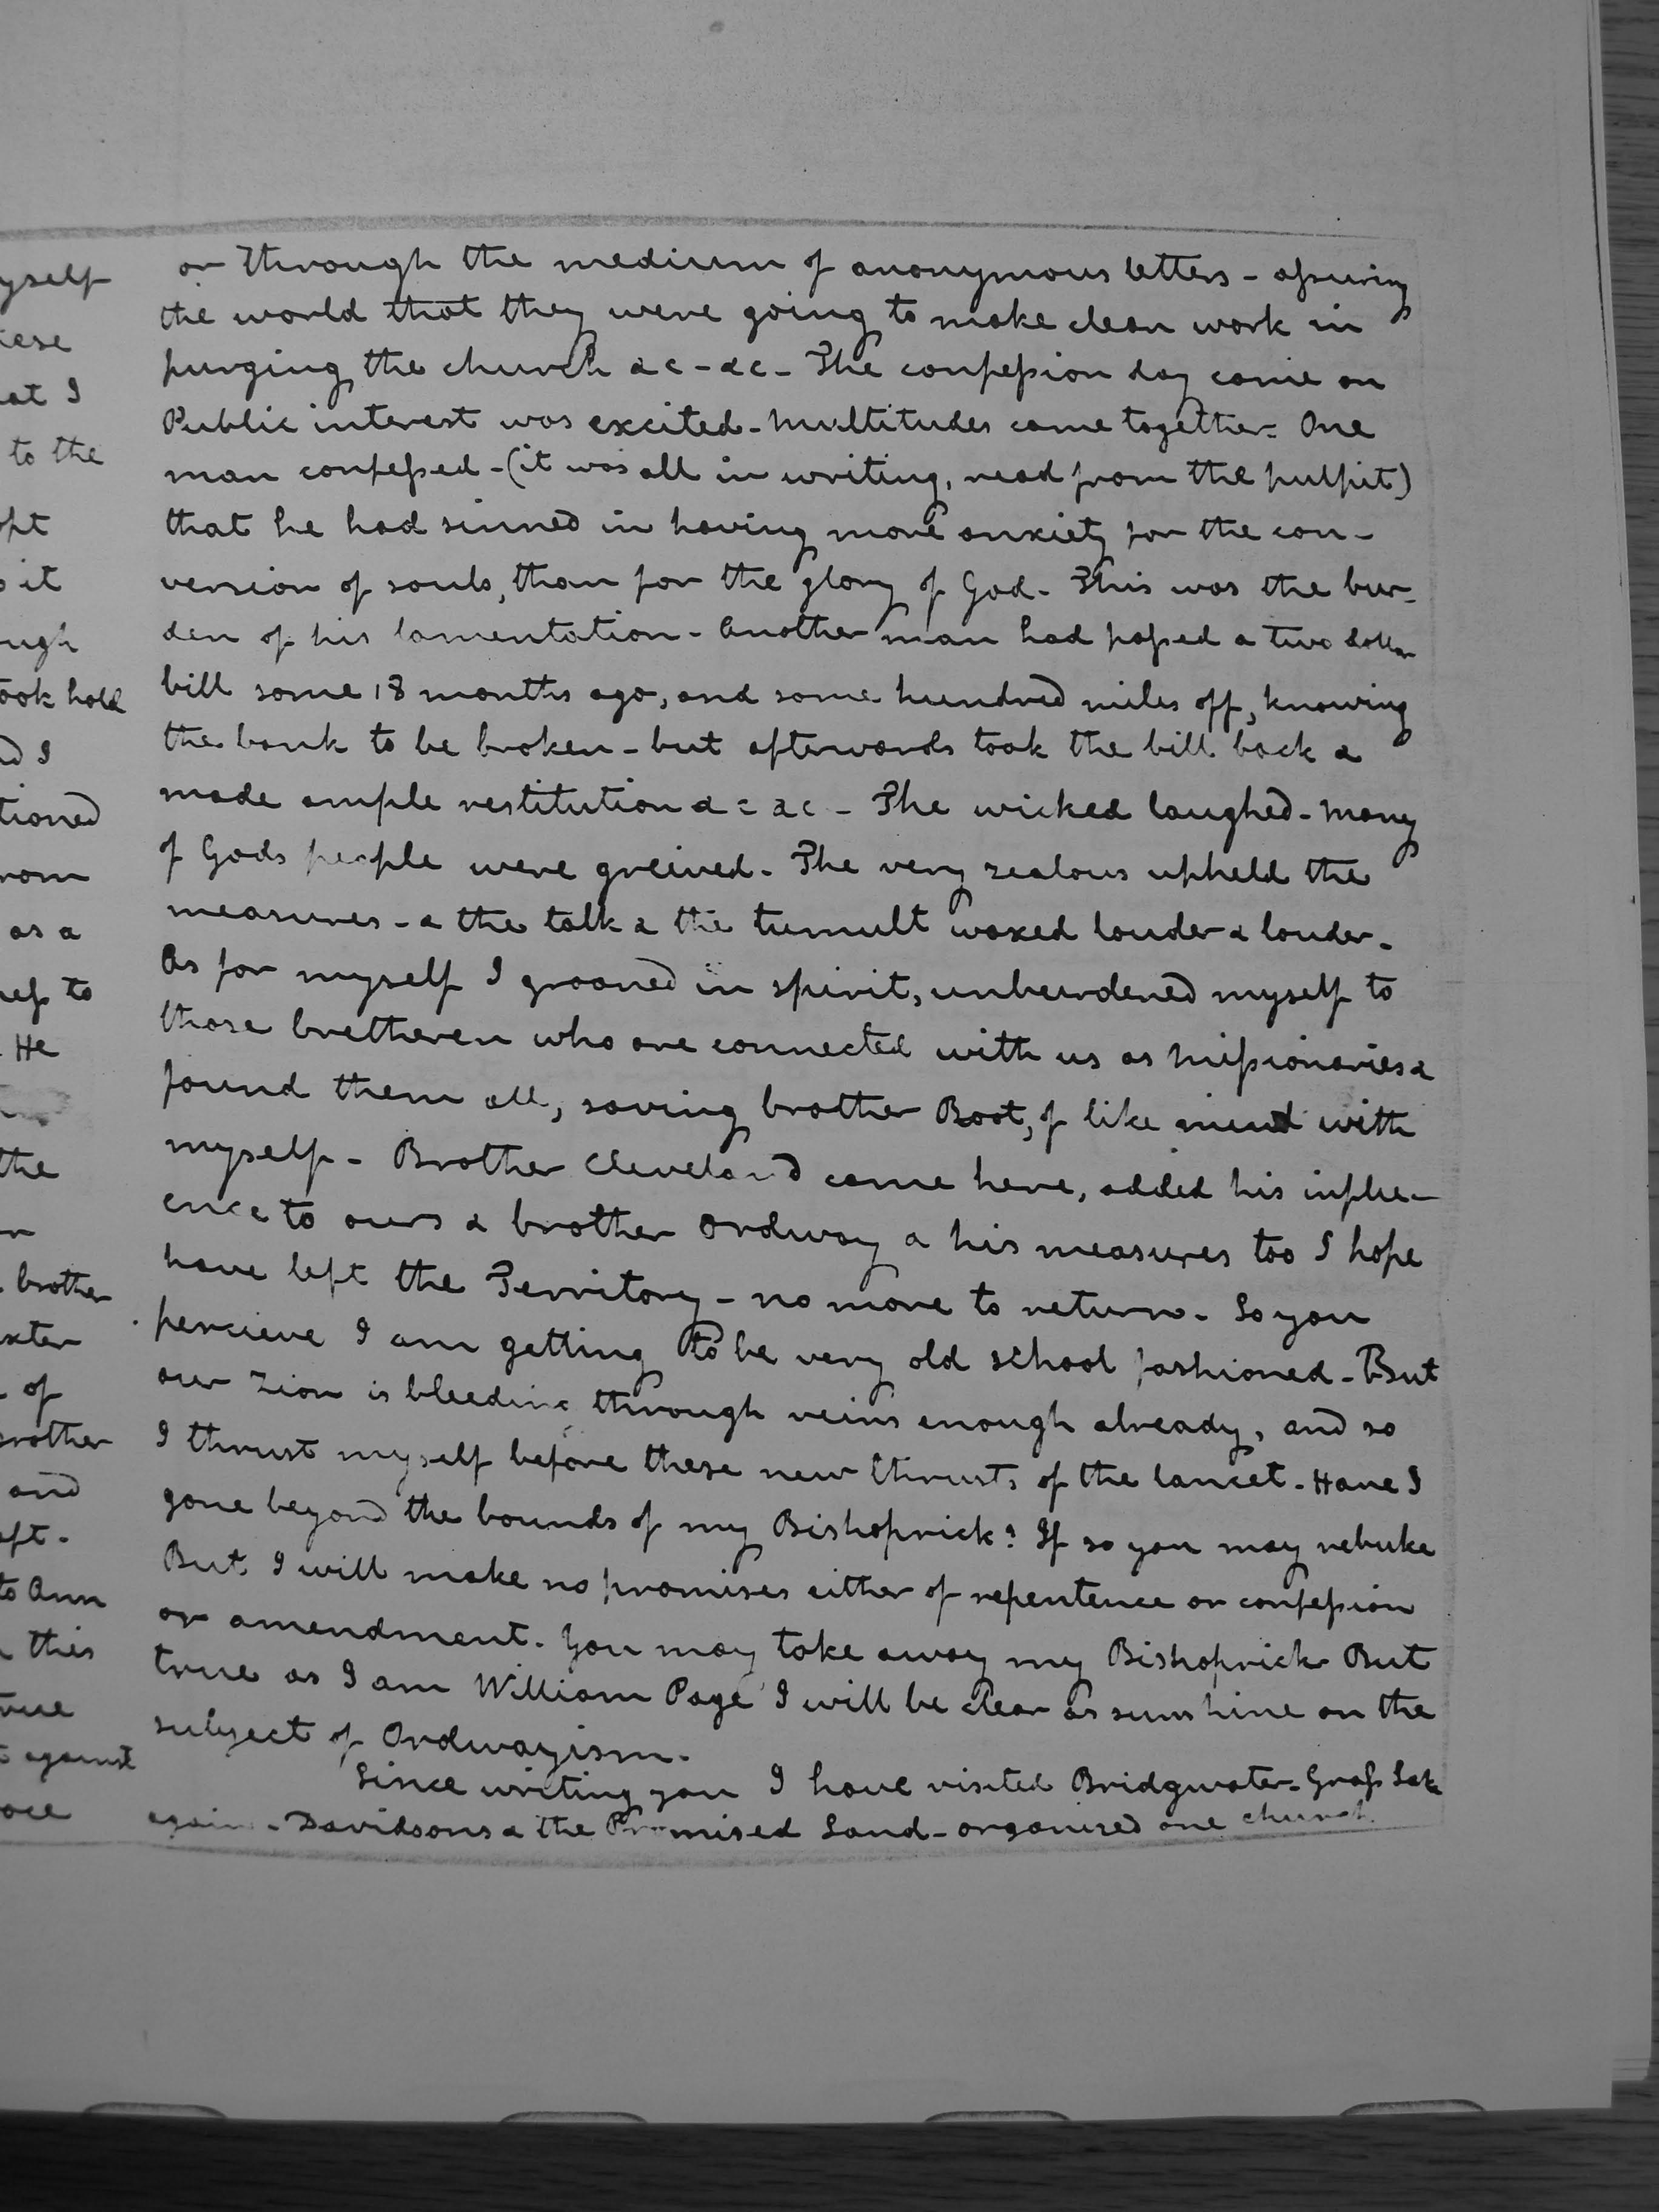 or through the medium of anonymous letters - assuring
the world that they were going to make clean work in
purging the church &c - &c - The confession day came on
Public interest was excited - Multitudes came together - One
man confessed - (it was all in writing, read from the pulpit)
that he had sinned in having more anxiety for the con-
version of souls, than for the glory of God - This was the bur-
den of his lamentation - Another man had passed a two dollar
bill some 18 months ago, and some hundred miles off, knowing
the bank to be broken - but afterwards took the bill back &
made ample restitution &c &c - The wicked laughed - Many
of Gods people were greived - The very zealous upheld the
measures - & the talk & the tumult waxed louder & louder -
As for myself I groaned in spirit, unburdened myself to
those bretheren who are connected with us as Missionaries &
found them all, saving brother Root, of like mind with
myself - Brother Cleveland came here, added his influ-
ence to ours & brother Ordway & his measures too I hope
have left the Territory - no more to return - So you
percieve I am getting to be very old school fashioned - But
our Zion is bleeding through veins enough already, and so
I thrust myself before these new thrusts of the lancet - Have I
gone beyond the bounds of my Bishoprick? If so you may rebuke
But I will make no promises either of repentence or confession
or amendment. You may take away my Bishoprick But
true as I am William Page I will be clear as sunshine on the
subject of Ordwayism.
Since writing you I have visited Bridgwater - Grass Lak
again - Davidsons & the Promised Land - organized one church
yself
iese
at I
to the
opt
it
ough
ook hold
d I
tioned
rom
as a
He
the
brother
of
brother
and
eft -
to Ann
this
true
against